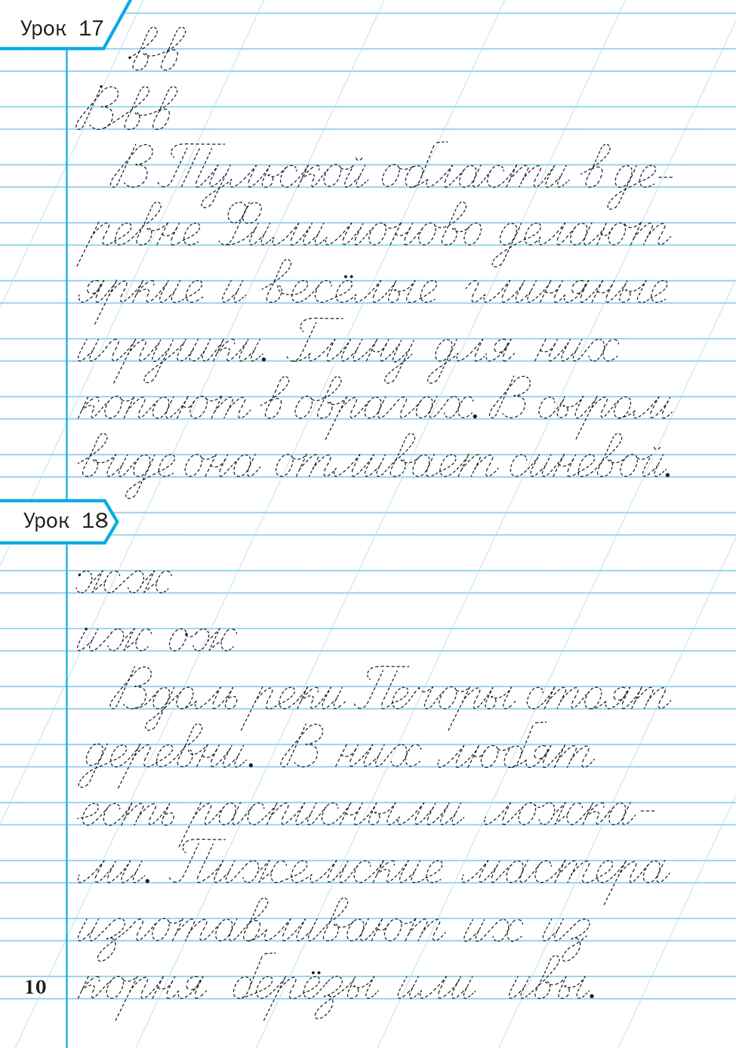 Урок 17
вв
Ввв
В Тульской области в де-
ревне Филимоново делают
яркие и весёлые глиняные
игрушки. Глину для них
копают в оврагах. В сыром
виде она отливает синевой.
Урок 18
жж
иж ож
Вдоль реки Печоры стоят
деревни. В них любят
есть расписными ложка-
ми. Пижемские мастера
изготавливают их из
корня берёзы или ивы.
10